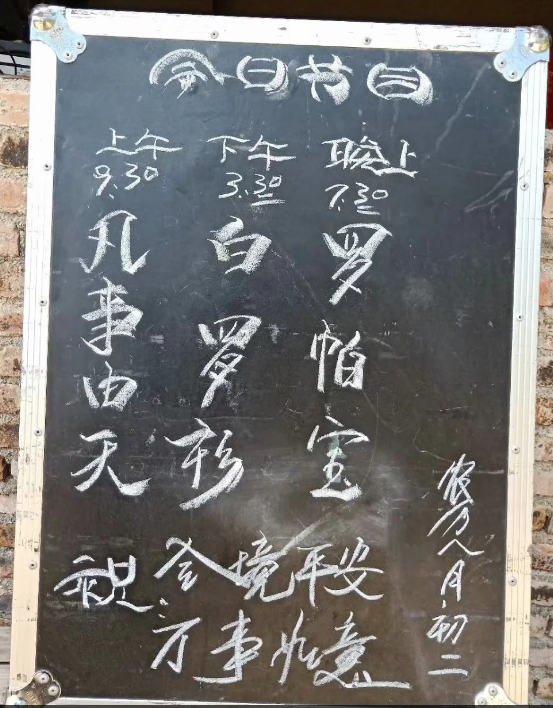 今日节目
上午
9:30
凡事由天
下午
3:30
白罗衫
晚上
7:30
罗帕宝
农历八月初二
祝:合境平安
万事如意